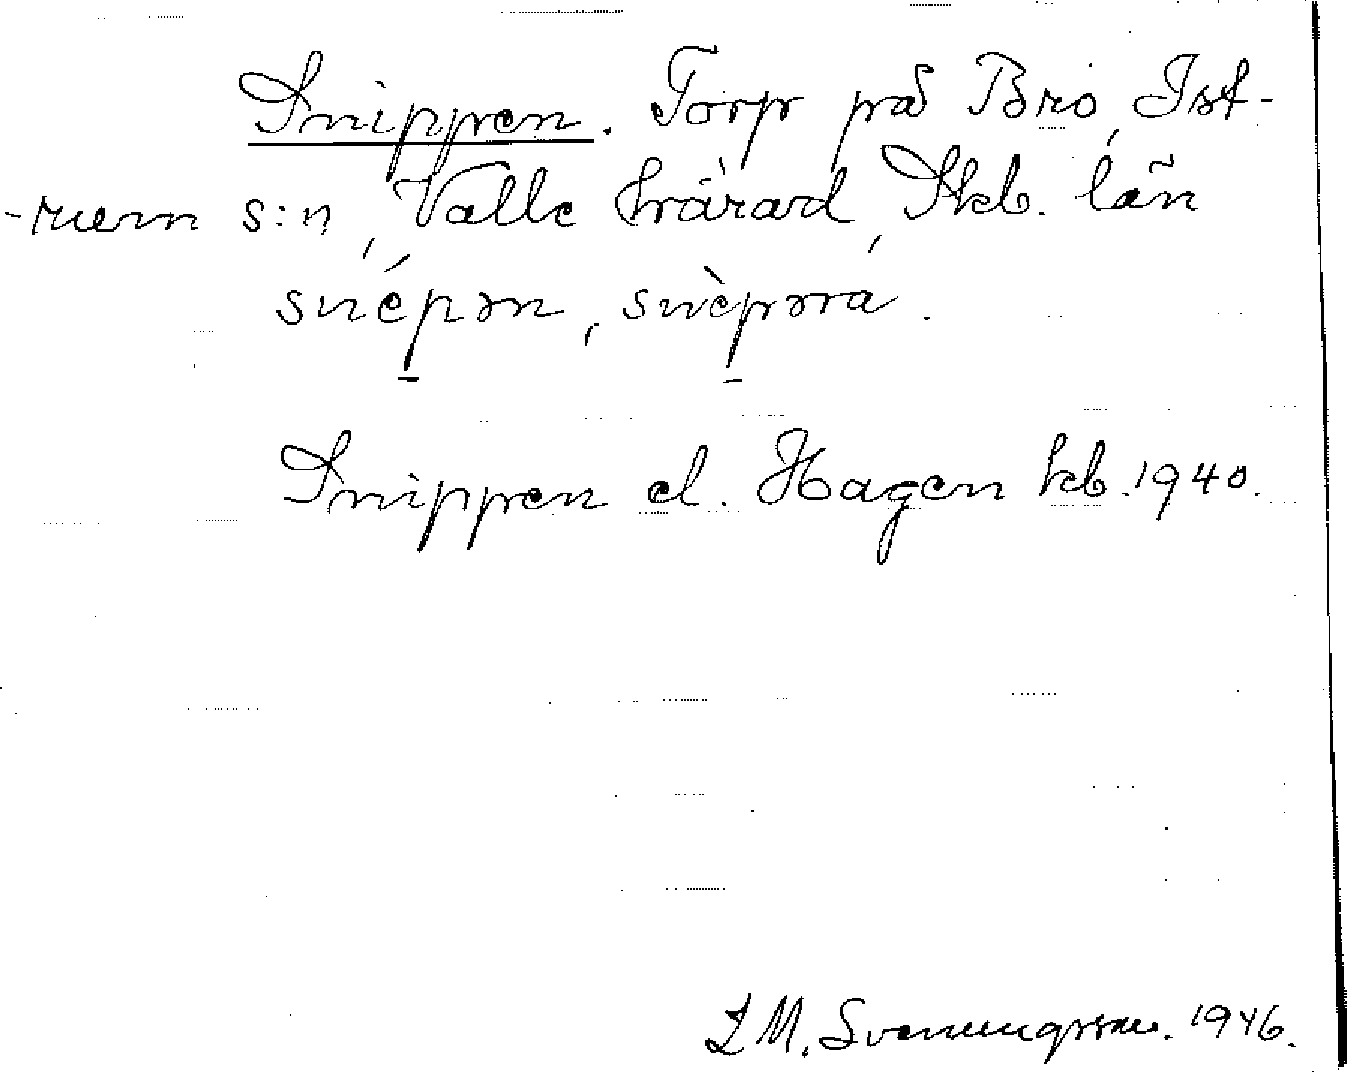 Snippen. Torp på Bro, Ist-
-rum s:n, Valle härad, Skb. län
snépən, snèpəra.
Snippen el. Hagen kb. 1940.
L M. Svenungsson. 1946.